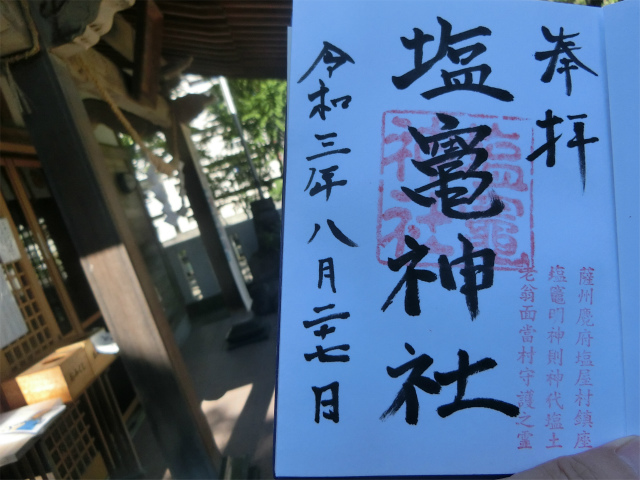 奉拝
塩竈神社
令和三年八月二十七日
塩竈
神社
薩州麑府塩屋村鎮座
塩竈明神則神代塩土
老翁面當村守護之霊